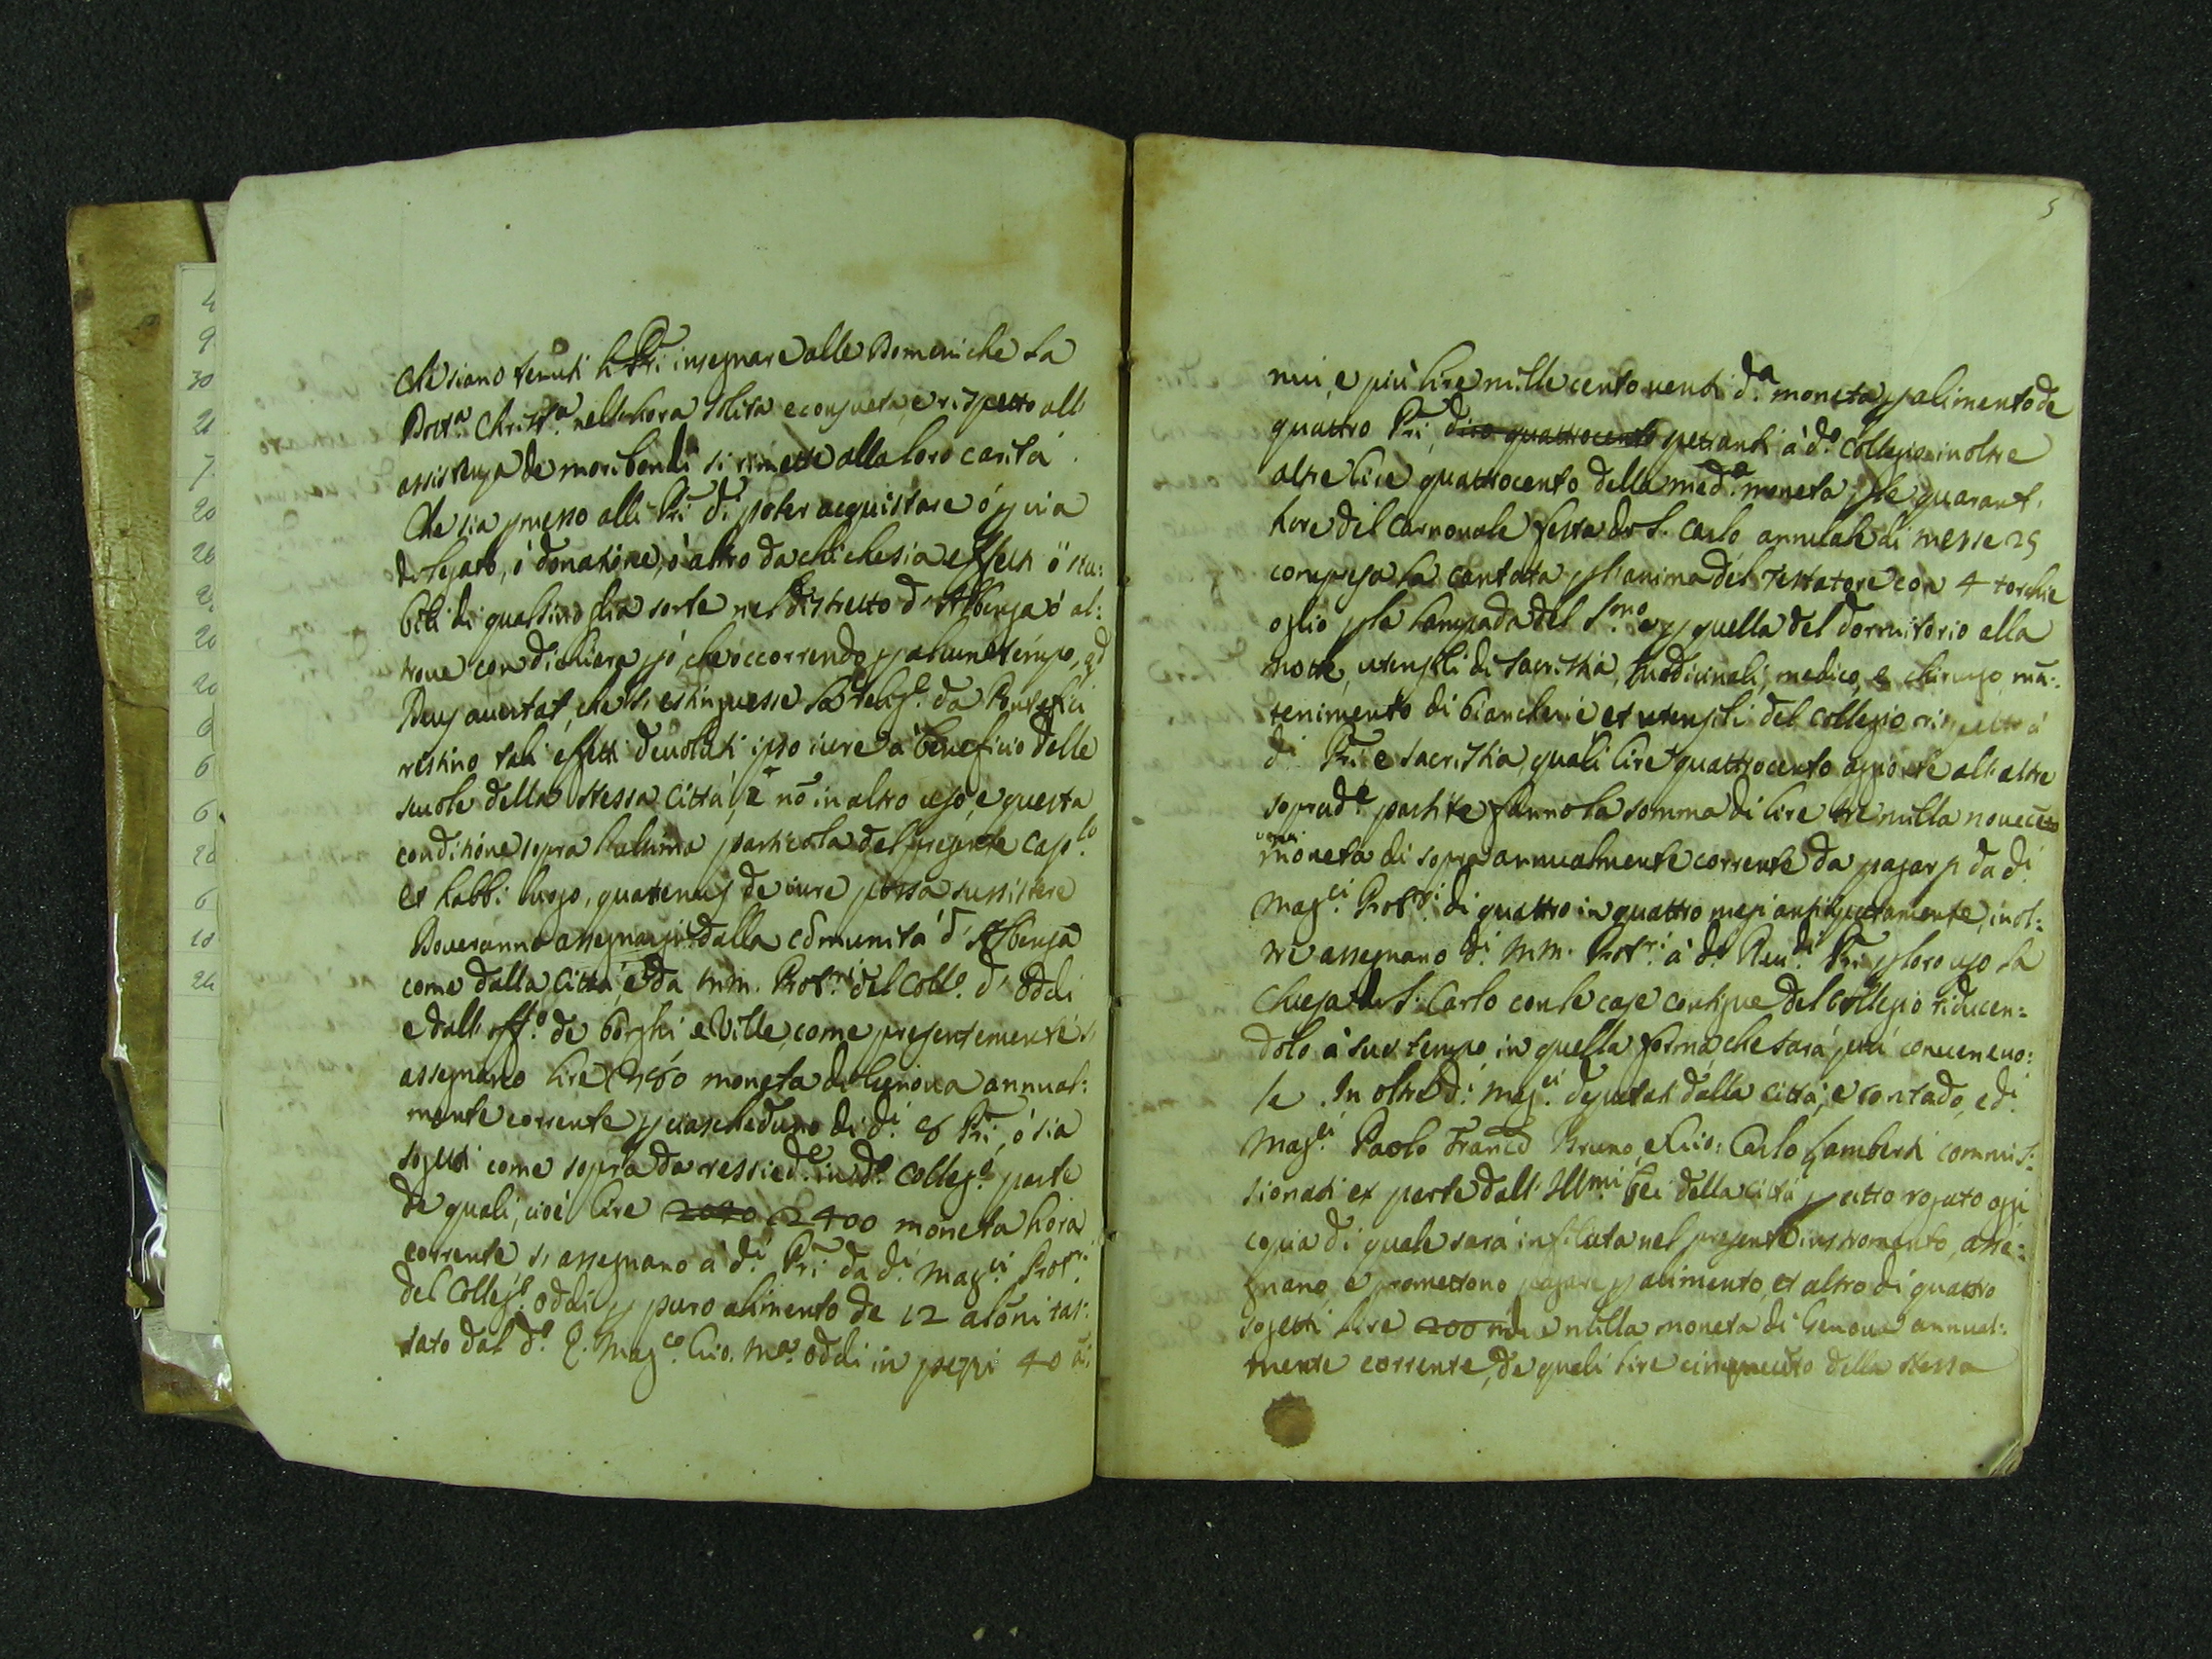 Che siano tenuti li Pri insegnare alle Domeniche la
Dott.a Christ.a nell'hora solita e consueta, e rispetto all'
assistenza de moribondi si rimette alla loro carità.
Che sia pmesso alli Pri di poter acquistare ò p via
di legato, ò donatione, ò altro da chi che sia effetti ò sta:
bili di qualsivoglia sorte nel distretto d'Albenga ò al:
trove con dichiara p.ò che occorrendo p alcun tempo, qd
Deus avertat, che si estinguesse la Relig.e da Pontefici
restino tali effetti devoluti ipso iure à beneficio delle
scuole della stessa Città, è nō in altro uso, e questa
conditione sopra l'ultima particola del presente Cap.lo
et habbi luogo, quatenus de iure possa sussistere
Doveranno assegnarsi dalla cōmunità d'Albenga
come dalla Città, e da MM. Prot.ri del Coll.o d'Oddi
e dall'off.o de Borghi e Ville, come presentemente si
assegnano lire 280 moneta di Genova annual:
mente corrente p ciascheduno di d.i 8 Pri, ò sia
sogetti come sopra da ressied.e in d.o Colleg.o parte
de quali, cioè lire 2000 2400 moneta hora
corrente, si assegnano à d.i Pri da d.i Mag.ci Prot.ri
del Colleg.o Oddi p puro alimento de 12 alōni tas:
sato dal d.o q. Mag.co Gio. Ma. Oddi in pezzi 40
5
nui, e più lire mille cento venti d.a moneta p alimento de
quattro Pri, dico quattrocento spettanti à d.o Collegio inoltre
altre lire quattrocento della med.a moneta p le quarant'
hore del Carnovale festa di S. Carlo annuale di messe 25
compresa la cantata p l'anima del Testatore con 4 torchie
oglio p la lampada del S.mo e p quella del dormitorio alla
notte, utensili di sacristia, medicinali, medico, e chirurgo mā:
tenimento di biancherie et utensili del Collegio rispetto à
d.i Pri e sacristia, quali lire quattrocento agionte all'altre
soprad.e partite fanno la somma di lire tre milla novecēto
venti
moneta di sopra annualmente corrente da pagarsi da d.i
Mag.ci Prot.ri di quattro in quattro mesi anticipatamente, inol:
tre assegnano d.i MM. Prot.ri à d.i Rev.di Pri p loro uso la
Chiesa di S. Carlo con le case contigue del Collegio riducen:
dolo à suo tempo in quella forma che sarà più convenevo:
le. In oltre d.i Mag.ci deputati dalla Città, e Contado, e d.i
Mag.ci Paolo Franco Bruno, e Gio: Carlo Lamberti commis:
sionati ex parte dall'Ill.mi della Città p atto rogato oggi
copia di quale sarà infilzata nel presente instromento, asse:
gnano, e promettono pagare p alimento, et altro di quattro
sogetti lire 200 milla moneta di Genova annual:
mente corrente, de quali lire cinquecēto della stessa